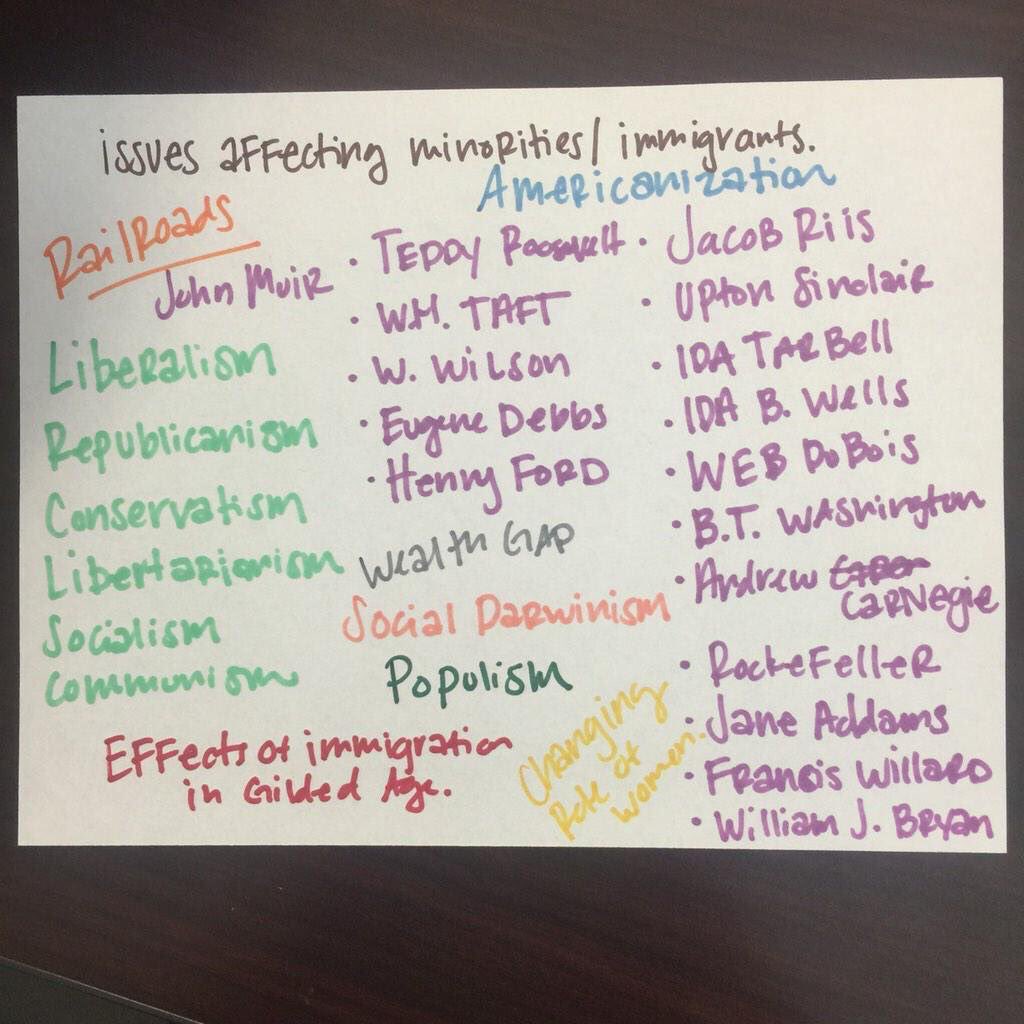 issues affecting minorities/ immigrants.
Americanization
RailRoads
John Muir
Liberalism
Republicanism
Conservatism
Libertarianism
Socialism
Communism
• Teddy Roosevelt
• W.H. TAFT
• W. Wilson
• Eugene Debbs
• Henry FORD
Wealth GAP
Social Darwinism
Populism
• Jacob Riis
• Upton Sinclair
• IDA TARBell
• IDA B. Wells
• WEB DuBois
• B.T. Washington
• Andrew
Carnegie
• RockeFelleR
• Jane Addams
• Francis Willard
• William J. Bryan
Changing
Role of
women.
EFFects of immigration
in Gilded Age.